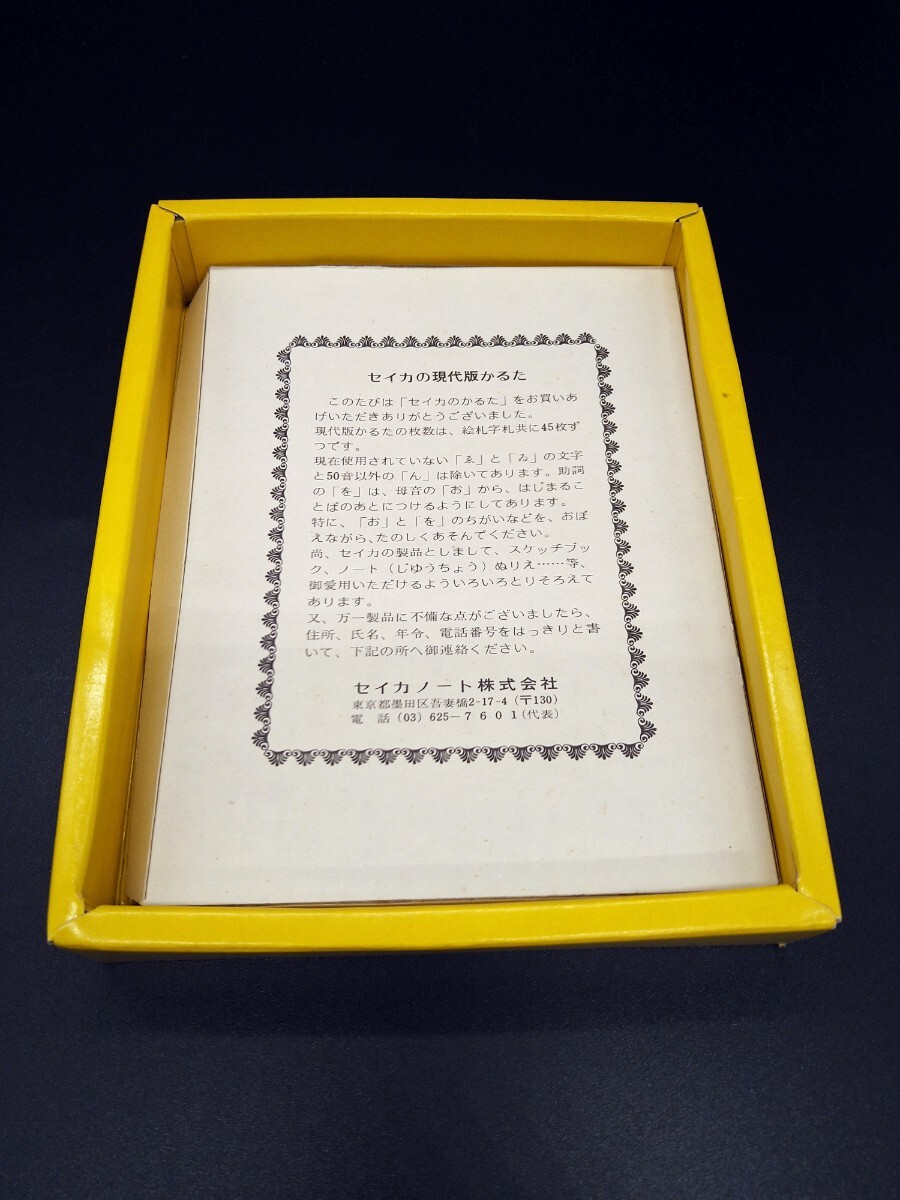 セイカの現代版かるた
このたびは「セイカのかるた」をお買いあ
げいただきありがとうございました。
現代版かるたの枚数は、絵札字札共に45枚ず
つです。
現在使用されていない「ゑ」と「ゐ」の文字
と50音以外の「ん」は除いてあります。助詞
の「を」は、母音の「お」から、はじまるこ
とばのあとにつけるようにしてあります。
特に、「お」と「を」のちがいなどを、おぼ
えながら、たのしくあそんでください。
尚、セイカの製品としまして、スケッチブッ
ク、ノート（じゆうちょう）ぬりえ……等、
御愛用いただけるよういろいろとりそろえて
あります。
又、万一製品に不備な点がございましたら、
住所、氏名、年令、電話番号をはっきりと書
いて、下記の所へ御連絡ください。
セイカノート株式会社
東京都墨田区吾妻橋2-17-4（〒130）
電話（03）625－7601（代表）